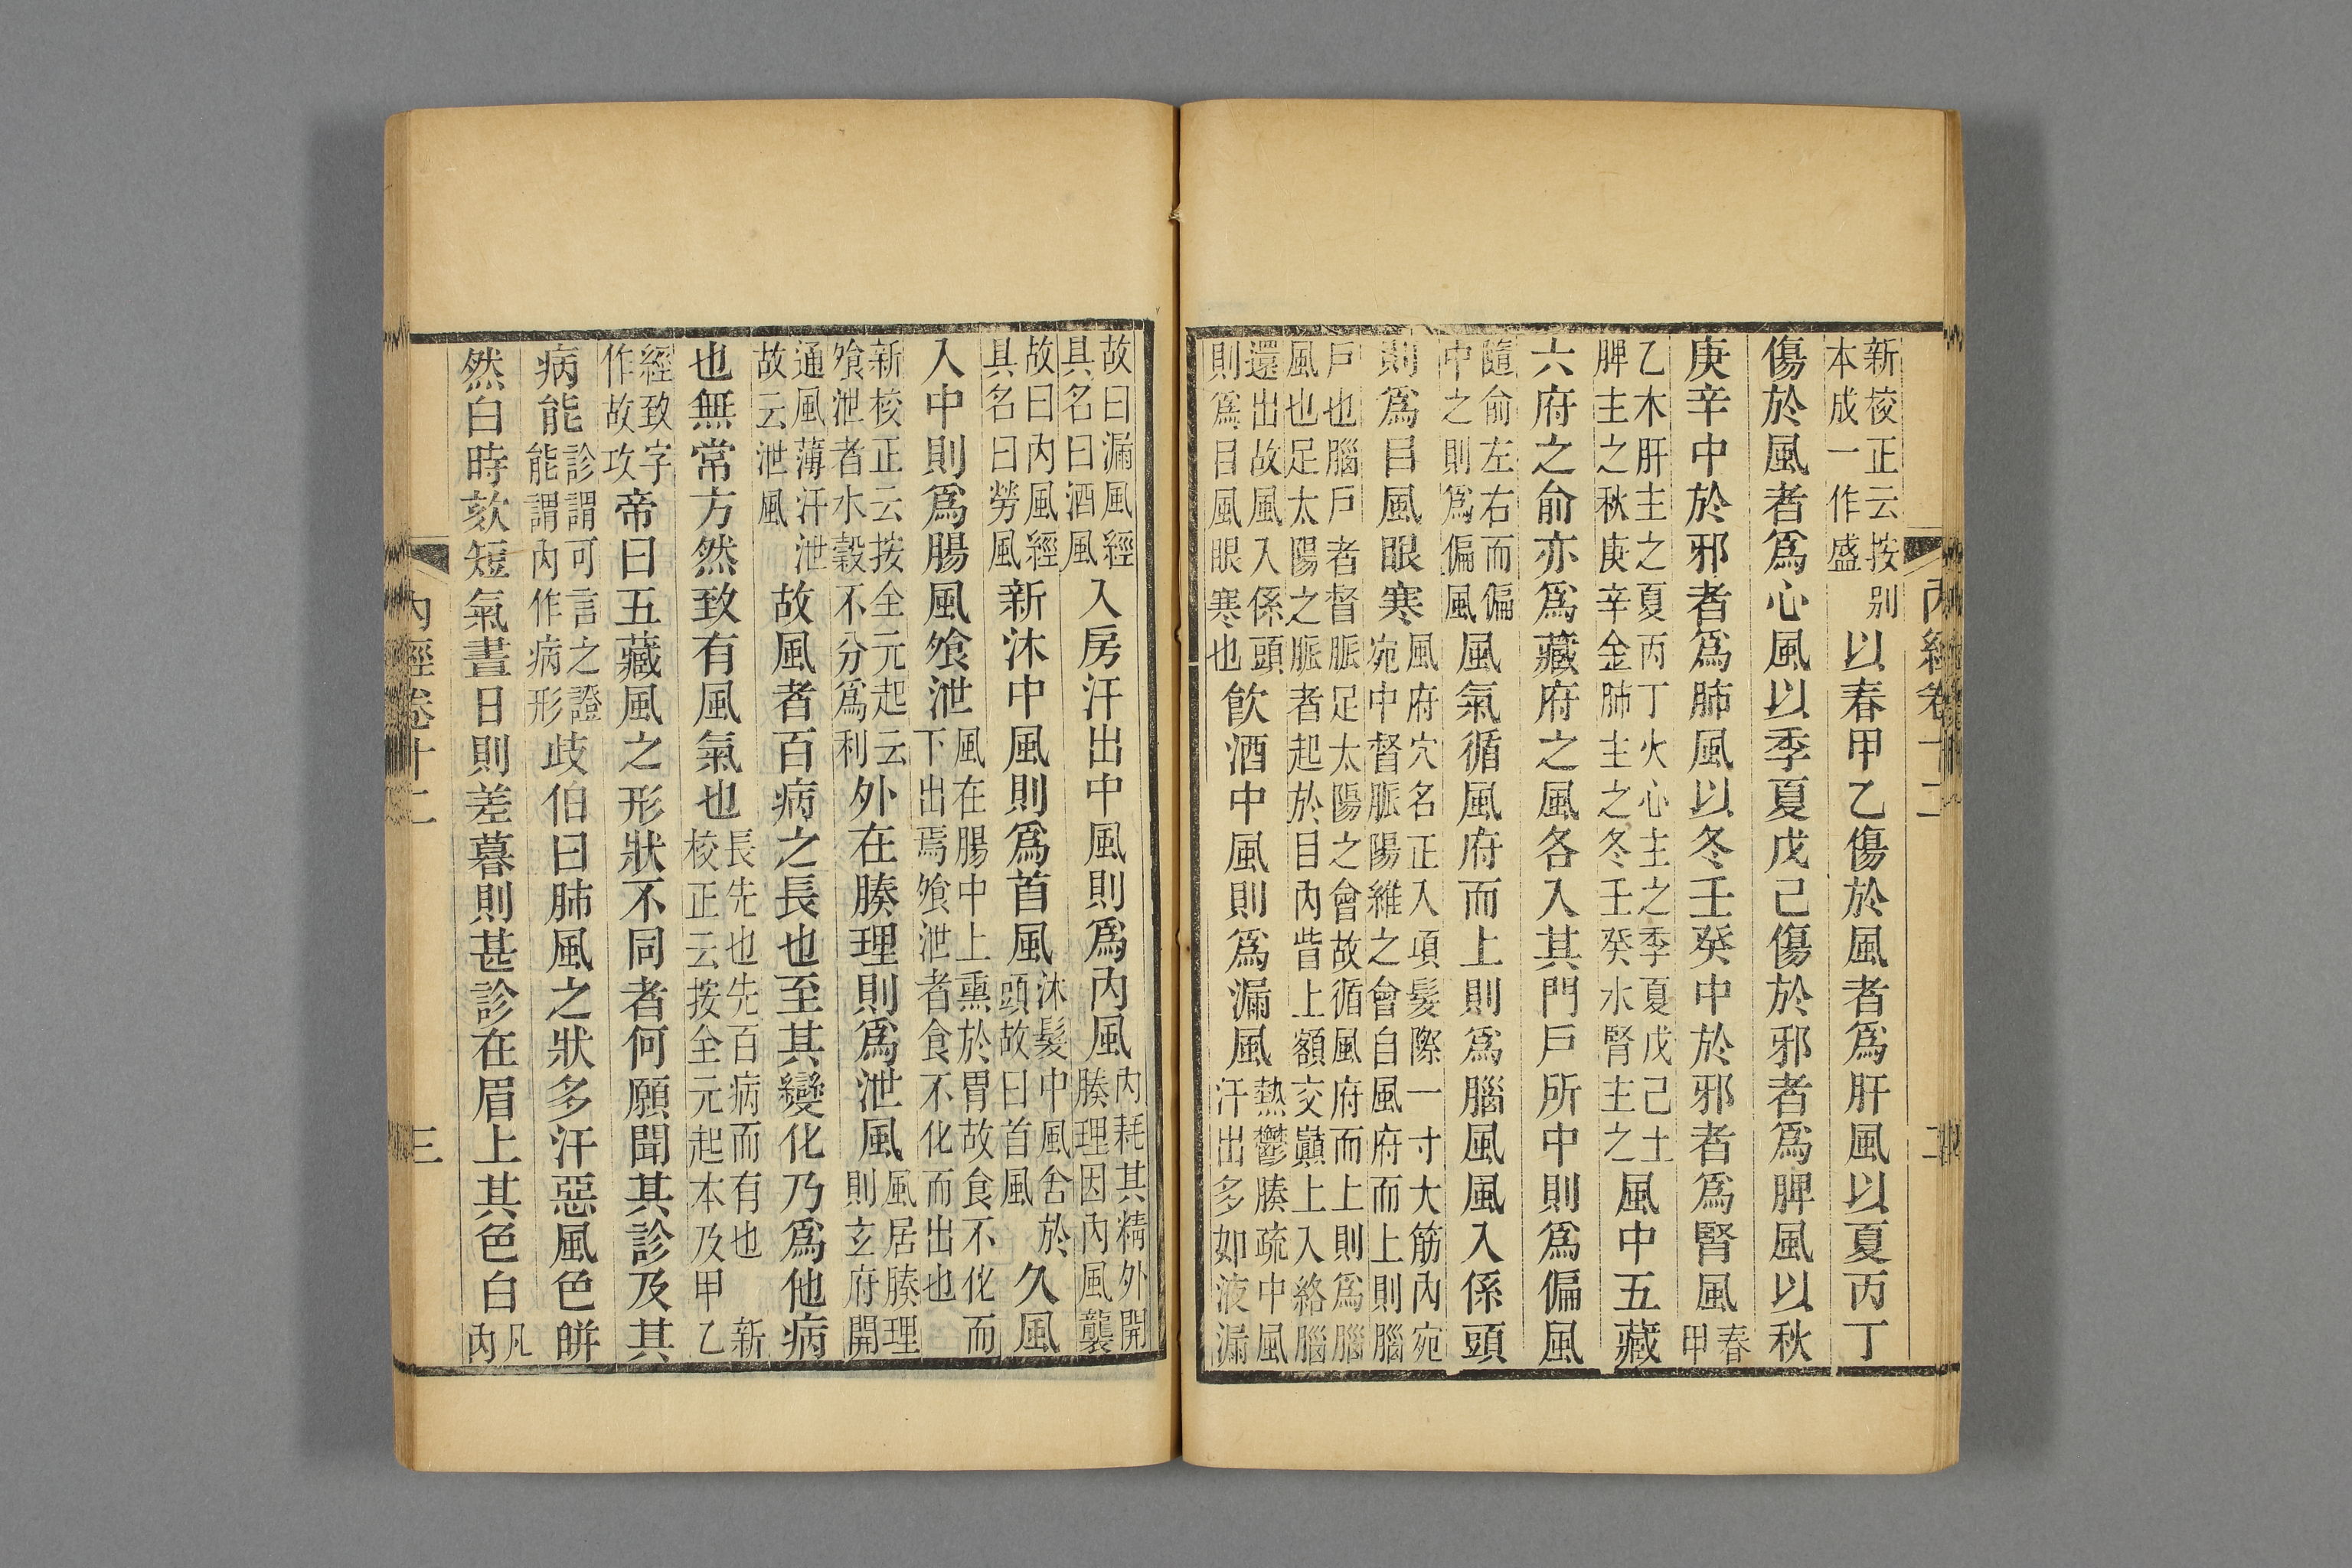 內經卷十二 二
新校正云按別本成一作盛以春甲乙傷於風者爲肝風以夏丙丁
傷於風者爲心風以季夏戊己傷於邪者爲脾風以秋
庚辛中於邪者爲肺風以冬壬癸中於邪者爲腎風春甲
乙木肝主之夏丙丁火心主之季夏戊己土脾主之秋庚辛金肺主之冬壬癸水腎主之風中五藏
六府之俞亦爲藏府之風各入其門戶所中則爲偏風
隨俞左右而偏中之則爲偏風風氣循風府而上則爲腦風風入係頭
則爲目風眼寒風府穴名正入項髮際一寸大筋內宛宛中督脈陽維之會自風府而上則腦
戶也腦戶者督脈足太陽之會故循風府而上則爲腦風也足太陽之脈者起於目內眥上額交巔上入絡腦
還出故風入係頭則爲目風眼寒也飲酒中風則爲漏風熱鬱腠疏中風汗出多如液漏
故曰漏風經具名曰酒風入房汗出中風則爲內風內耗其精外開腠理因內風襲
故曰內風經具名曰勞風新沐中風則爲首風沐髮中風舍於頭故曰首風久風
入中則爲腸風飧泄風在腸中上熏於胃故食不化而下出焉飧泄者食不化而出也
新校正云按全元起云飧泄者水穀不分爲利外在腠理則爲泄風風居腠理則玄府開
通風薄汗泄故云泄風故風者百病之長也至其變化乃爲他病
也無常方然致有風氣也長先也先百病而有也新校正云按全元起本及甲乙
經致字作故攻帝曰五藏風之形狀不同者何願聞其診及其
病能診謂可言之證能謂內作病形歧伯曰肺風之狀多汗惡風色皏
然白時欬短氣晝日則差暮則甚診在眉上其色白凡內
內經卷十二 三